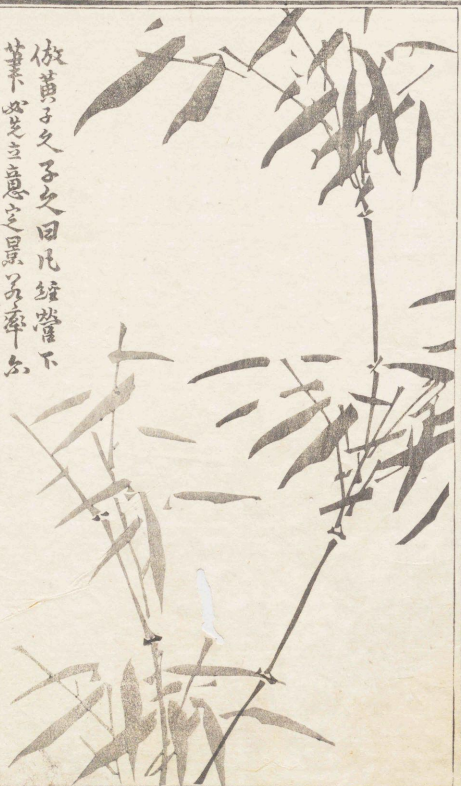 倣黄子久子久曰凡經營下
筆必先立意定景若率尔